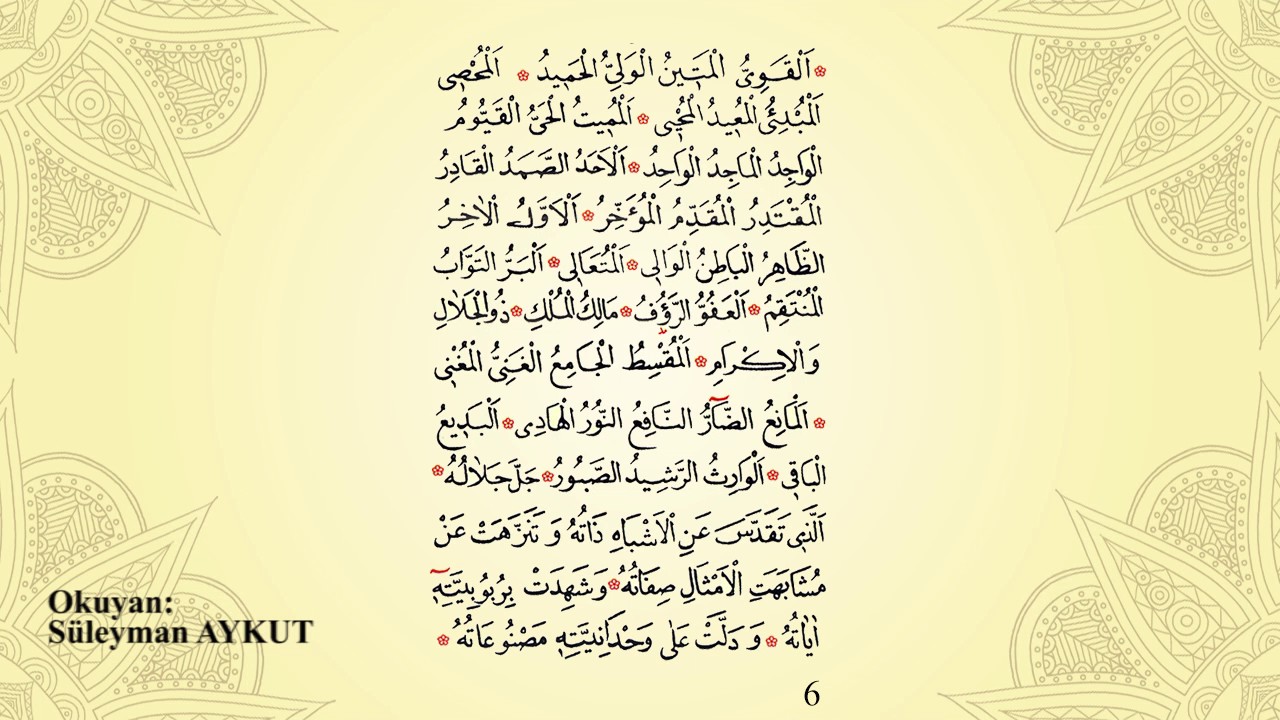 ❀ اَلْقَوِىُّ الْمَتٖينُ الْوَلِىُّ الْحَمٖيدُ ❀ اَلْمُحْصٖى
اَلْمُبْدِئُ الْمُعٖيدُ الْمُحْيٖى ❀ اَلْمُمٖيتُ الْحَىُّ الْقَيُّومُ
الْوَاجِدُ الْمَاجِدُ الْوَاحِدُ ❀ اَلْاَحَدُ الصَّمَدُ الْقَادِرُ
الْمُقْتَدِرُ الْمُقَدِّمُ الْمُؤَخِّرُ ❀ اَلْاَوَّلُ الْاٰخِرُ
الظَّاهِرُ الْبَاطِنُ الْوَالٖى ❀ اَلْمُتَعَالٖى ❀ اَلْبَرُّ التَّوَّابُ
الْمُنْتَقِمُ ❀ اَلْعَفُوُّ الرَّؤُفُ ❀ مَالِكُ الْمُلْكِ ❀ ذُوالْجَلَالِ
وَالْاِكْرَامِ ❀ اَلْمُقْسِطُ الْجَامِعُ الْغَنِىُّ الْمُغْنٖى
❀ اَلْمَانِعُ الضَّآرُّ النَّافِعُ النُّورُ الْهَادٖى ❀ اَلْبَدٖيعُ
الْبَاقٖى ❀ اَلْوَارِثُ الرَّشٖيدُ الصَّبُورُ ❀ جَلَّ جَلَالُهُ ❀
اَلَّذٖى تَقَدَّسَ عَنِ الْاَشْبَاهِ ذَاتُهُ وَ تَنَزَّهَتْ عَنْ
مُشَابَهَتِ الْاَمْثَالِ صِفَاتُهُ ❀ وَشَهِدَتْ بِرُبُوبِيَّتِهٖٓ
اٰيَاتُهُ ❀ وَ دَلَّتْ عَلٰى وَحْدَانِيَّتِهٖ مَصْنُوعَاتُهُ ❀
Okuyan:
Süleyman AYKUT
6